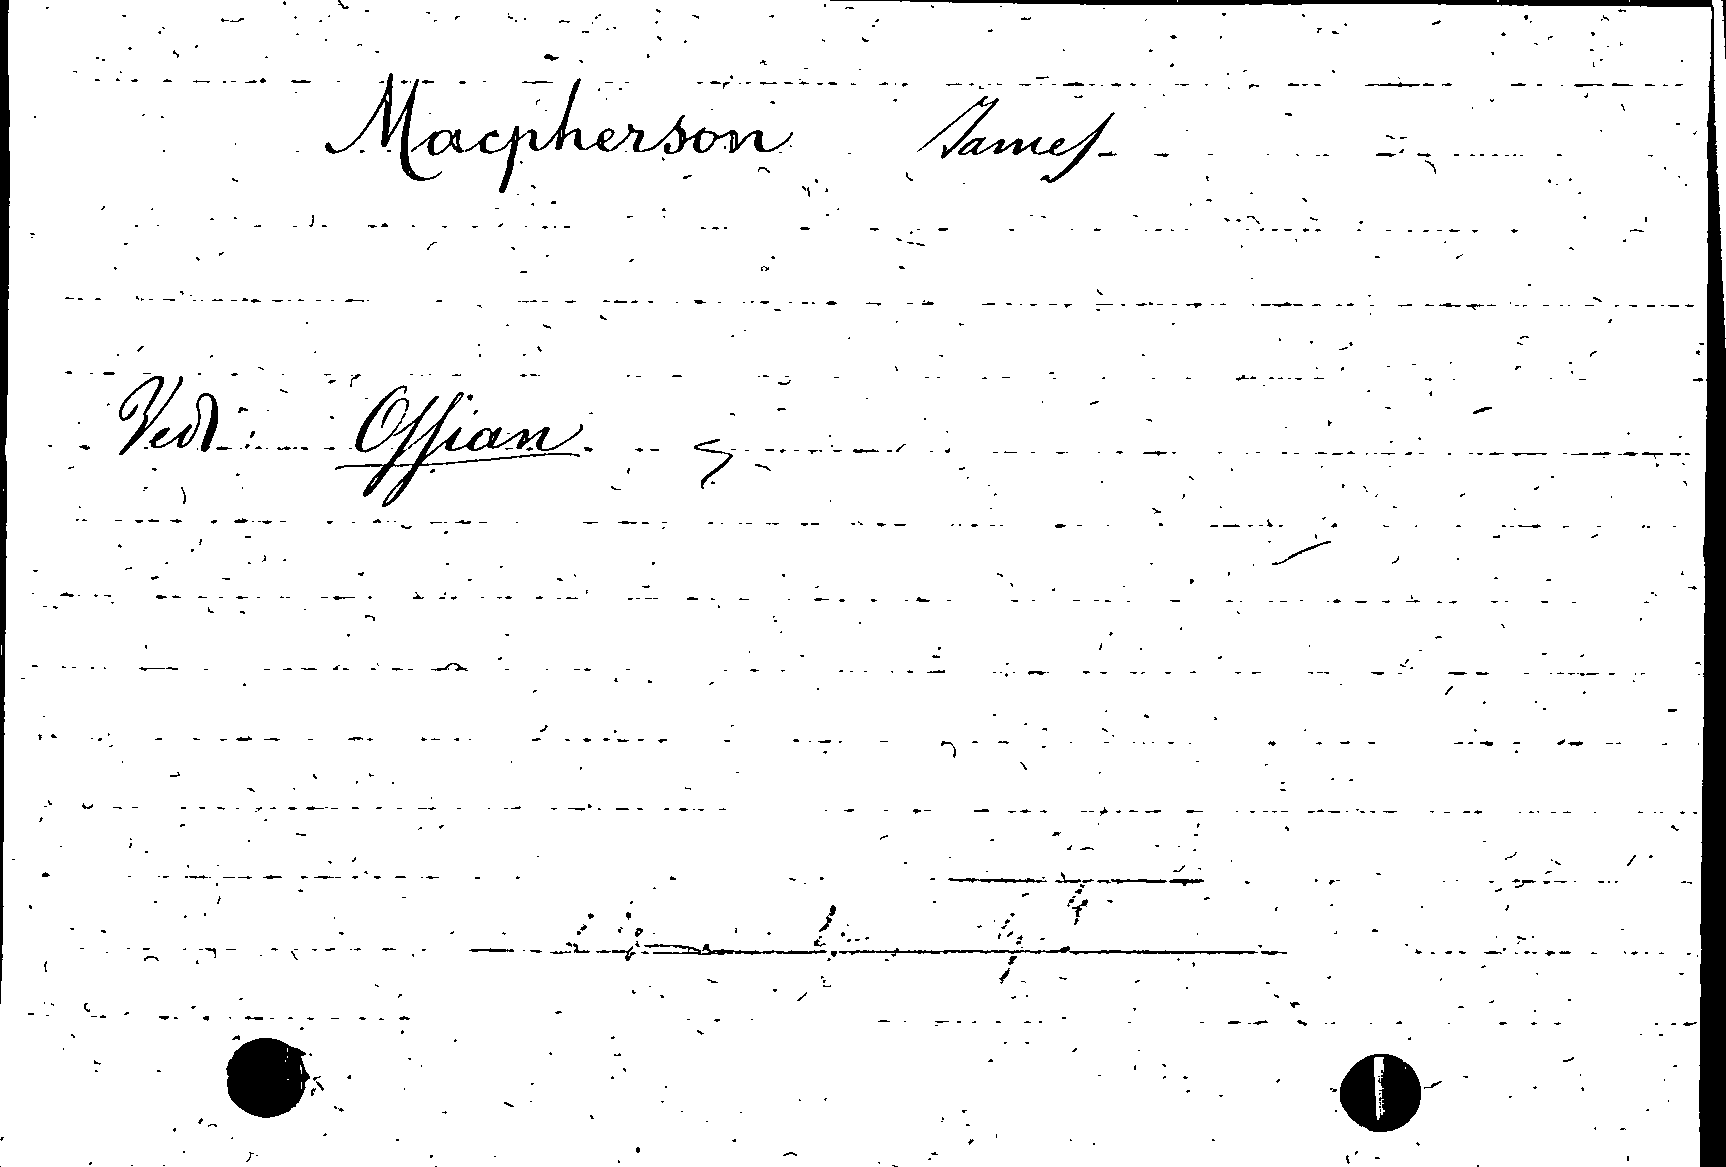 Macpherson James
Vedi Ossian